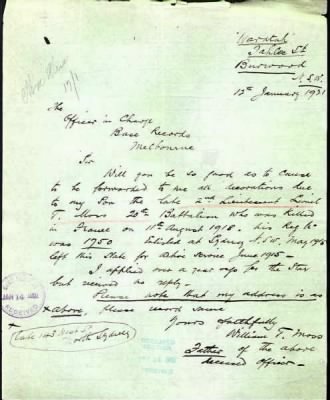 "Waratah"
Burwood
N.S.W.
12th January 1921
The
Officer in Charge
Base Records
Melbourne
Sir
Will you be so good as to cause
to be forwarded to me all decorations due
to my Son the late 2nd Lieutenant Lionel
T. Moss 20th Battalion who was killed
in France on 11th August 1918. his Reg No
was 1750 Enlisted at Sydney N.S.W. May 1915
left this State for active service June 1915 -
I applied one a year ago for the Star
but received no reply -
Please note that my address is as
above, please record same
Yours faithfully
William T. Moss
Father of the above
deceased officer -
Late 143 West St
North Sydney
RECEIVED